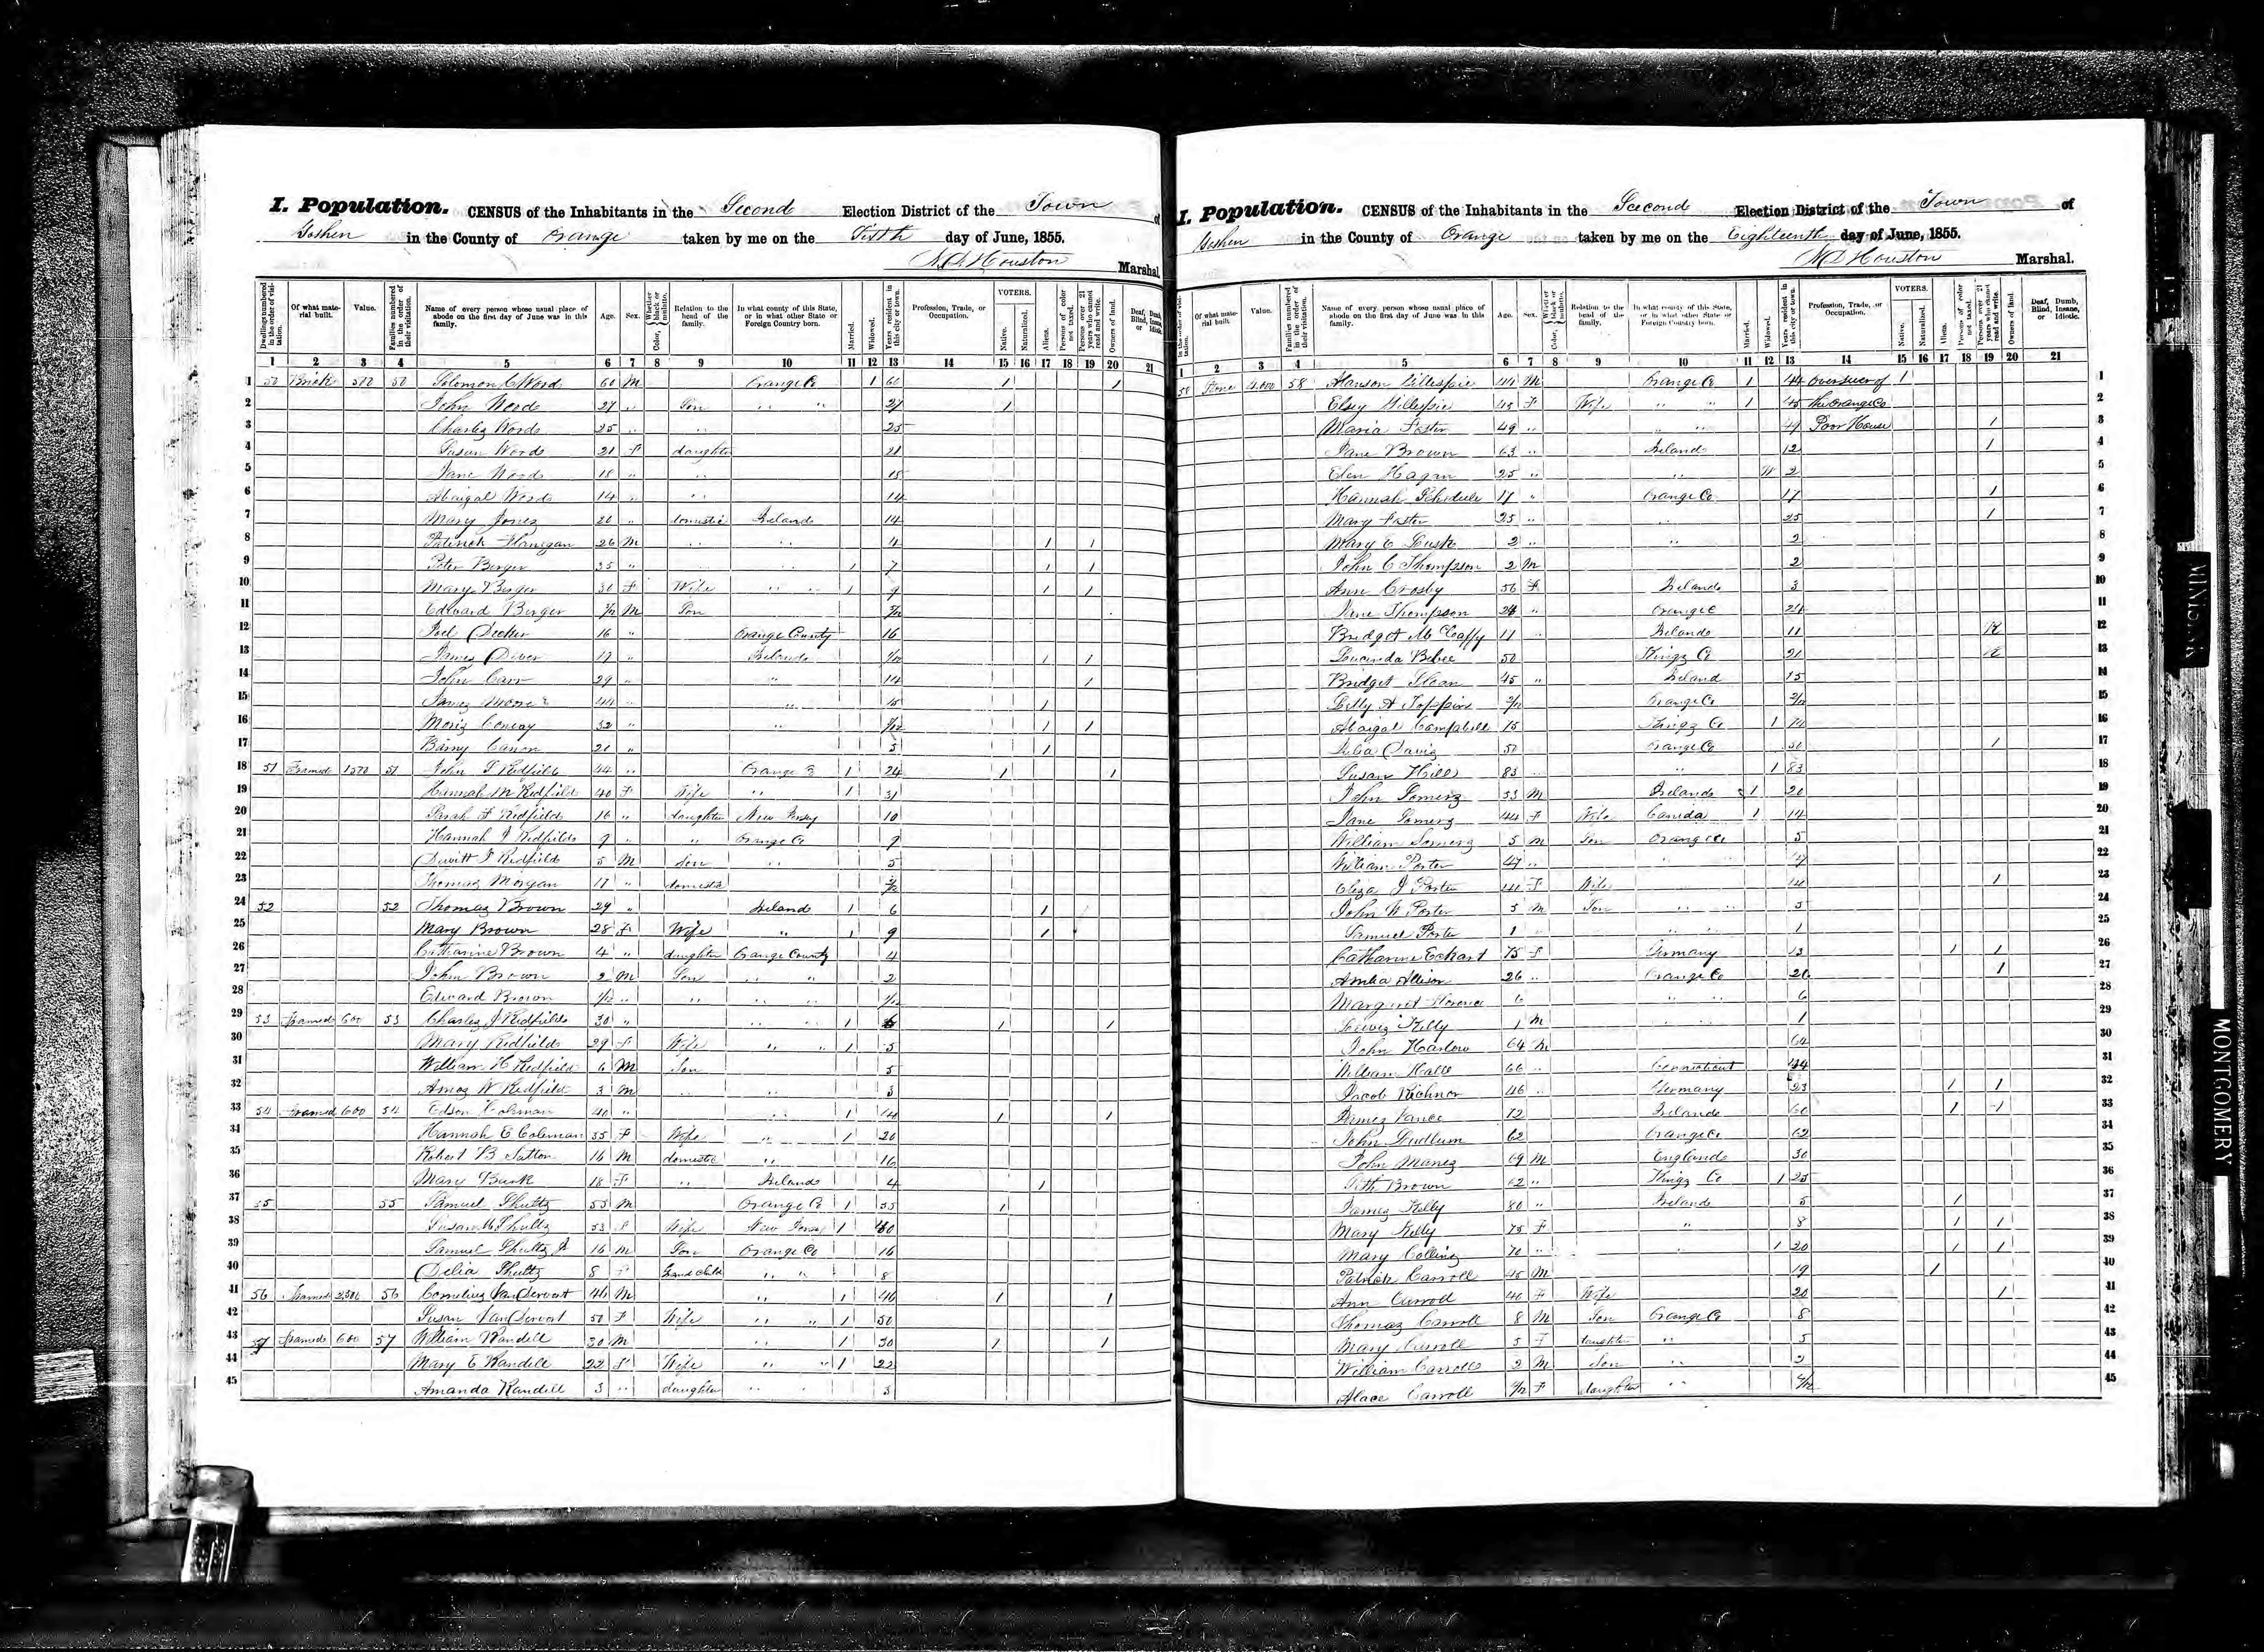 I. Population. CENSUS of the Inhabitants in the Second Election District of the Town of
Goshen in the County of Orange taken by me on the day of June, 1855.
N D Houston Marshal
Dwellings numbered in the order of visitation. Of what material built. Value. Families numbered in the order of their visitation. Name of every person whose usual place of abode on the first day of June was in this family. Age. Sex. Color, Whether black or mulatto. Relation to the head of the family. In what county of this State, or in what other State or Foreign Country born. Married. Widowed. Years resident in this city or town. Profession, Trade, or Occupation. VOTERS. Native. Naturalized. Aliens. Persons of color not taxed. Persons over 21 years who cannot read and write. Owners of land. Deaf, Dumb, Blind, Insane, or Idiotic.
1 2 3 4 5 6 7 8 9 10 11 12 13 14 15 16 17 18 19 20 21
1 50 Brick 50 Solomon 60 M Orange Co 1 60 1 1
2 John 27 " Son " " 27 1
3 Charles 25 " " 25
4 Susan 21 F daughter 21
5 Jane 18 " " 18
6 Abaigal 14 " " 14
7 Mary Jones 20 " domestic Ireland 14
8 Patrick Flanigan 26 M " " 4 1 1
9 Peter Berger 35 " 1 7 1 1
10 Mary Berger 30 F Wife " " 1 9 1 1
11 Edward Berger M Son
12 Joel Decker 16 " Orange County 16
13 James Diver " Ireland 1 1
14 John Carr 29 " " 14 1
15 James 44 " " 15 1
16 Conray 32 " " 1 1
17 Barny Canon 21 " 3 1
18 51 Framed 51 John Redfield 44 " Orange Co 1 24 1 1
19 Hannah M Redfield 40 F Wife " 1 31
20 Sarah Redfield 16 " daughter New Jersey 10
21 Hannah J Redfield 9 " " Orange Co 9
22 Dewitt Redfield 5 M Son " 5
23 Thomas Morgan 17 " domestic
24 52 52 Thomas Brown 29 " Ireland 1 6 1
25 Mary Brown 28 F Wife " 1 9 1
26 Catharine Brown 4 " daughter Orange County 4
27 John Brown 2 M Son " " 2
28 Edward Brown " " " "
29 53 Framed 600 53 Charles J Redfield 30 " " " 1 1 1
30 Mary Redfield 29 F Wife " " 1 5
31 William H Redfield 6 M Son 5
32 Amos W Redfield 3 M " " 3
33 54 Framed 600 54 Edson Coleman 40 " " 1 14 1 1
34 Hannah E Coleman 35 F Wife " 1 20
35 Robert B Sutton 16 M domestic " 16
36 Mary Burk 18 F " Ireland 4 1
37 55 55 Samuel Shultz 55 M Orange Co 1 55 1
38 Susan Shultz 53 F Wife New Jersey 1
39 Samuel Shultz Jr 16 M Son Orange Co 16
40 Delia Shultz 8 F Grand child " " 8
41 56 Framed 56 Cornelius 46 M " 1 46 1 1
42 Susan 50 F Wife " " 1 50
43 57 Framed 600 57 William Randell 30 M " 1 30 1 1
44 Mary E Randell 22 F Wife " " 1 22
45 Amanda Randell 3 " daughter " " 3
I. Population. CENSUS of the Inhabitants in the Second Election District of the Town of
Goshen in the County of Orange taken by me on the Eighteenth day of June, 1855.
N D Houston Marshal.
Of what material built. Value. Families numbered in the order of their visitation. Name of every person whose usual place of abode on the first day of June was in this family. Age. Sex. Color, Whether black or mulatto. Relation to the head of the family. In what county of this State, or in what other State or Foreign Country born. Married. Widowed. Years resident in this city or town. Profession, Trade, or Occupation. VOTERS. Native. Naturalized. Aliens. Persons of color not taxed. Persons over 21 years who cannot read and write. Owners of land. Deaf, Dumb, Blind, Insane, or Idiotic.
1 2 3 4 5 6 7 8 9 10 11 12 13 14 15 16 17 18 19 20 21
58 Stone 58 Alanson Gillespie 44 M Orange Co 1 44 Overseer of 1 1
Elsey Gillespie 45 F Wife " " 1 45 the Orange Co 2
Maria Foster 49 " " " 49 Poor House 1 3
Jane Brown 63 " Ireland 12 1 4
Elen Hagan 25 " " 2 5
Hannah 17 " Orange Co 17 1 6
Mary Foster 25 " " 25 1 7
Mary E Lusk 2 " " 2 8
John C Thompson 2 M 2 9
Ann Crosby 56 F Ireland 3 10
Jane Thompson " Orange C 11
Bridget Mc Caffy 11 " Ireland 11 12
Lucinda 50 Kings Co 13
Bridget Sloan 45 " Ireland 15 14
Orange Co 15
Abaigal Campbell Kings Co 1 16
Julia Davis 50 Orange Co 50 1 17
Susan Hill 83 " " 1 83 18
John Somers 53 M Ireland 1 20 19
Jane Somers 44 F Wife Canida 1 14 20
William Somers 5 M Son Orange Co 5 21
William Porter 47 " " 22
Eliza J Porter F Wife 1 23
John W Porter 5 M Son " " 5 24
Samuel Porter 1 " " 1 25
Catharine Eckart 75 F Germany 13 1 1 26
Allison 26 " Orange Co 26 1 27
Margaret 6 " " 6 28
Kelly 1 M " " 1 29
John Harlow 64 M 64 30
William Hall 66 " Connecticut 31
Jacob 46 " Germany 23 1 1 32
James Vance 72 Ireland 60 1 1 33
John Ludlum 62 Orange Co 62 34
John Manez 69 M England 30 35
Seth Brown 62 " Kings Co 1 25 36
James Kelly 80 " Ireland 5 1 37
Mary Kelly 75 F " 8 1 1 38
Mary Collins 70 " " 1 20 1 1 39
Patrick Carroll 45 M 19 1 40
Ann Carroll 40 F Wife 20 1 41
Thomas Carroll 8 M Son Orange Co 8 42
Mary Carroll 5 F daughter " 5 43
William Carroll 2 M Son " 2 44
Carroll F daughter " 45
MONTGOMERY